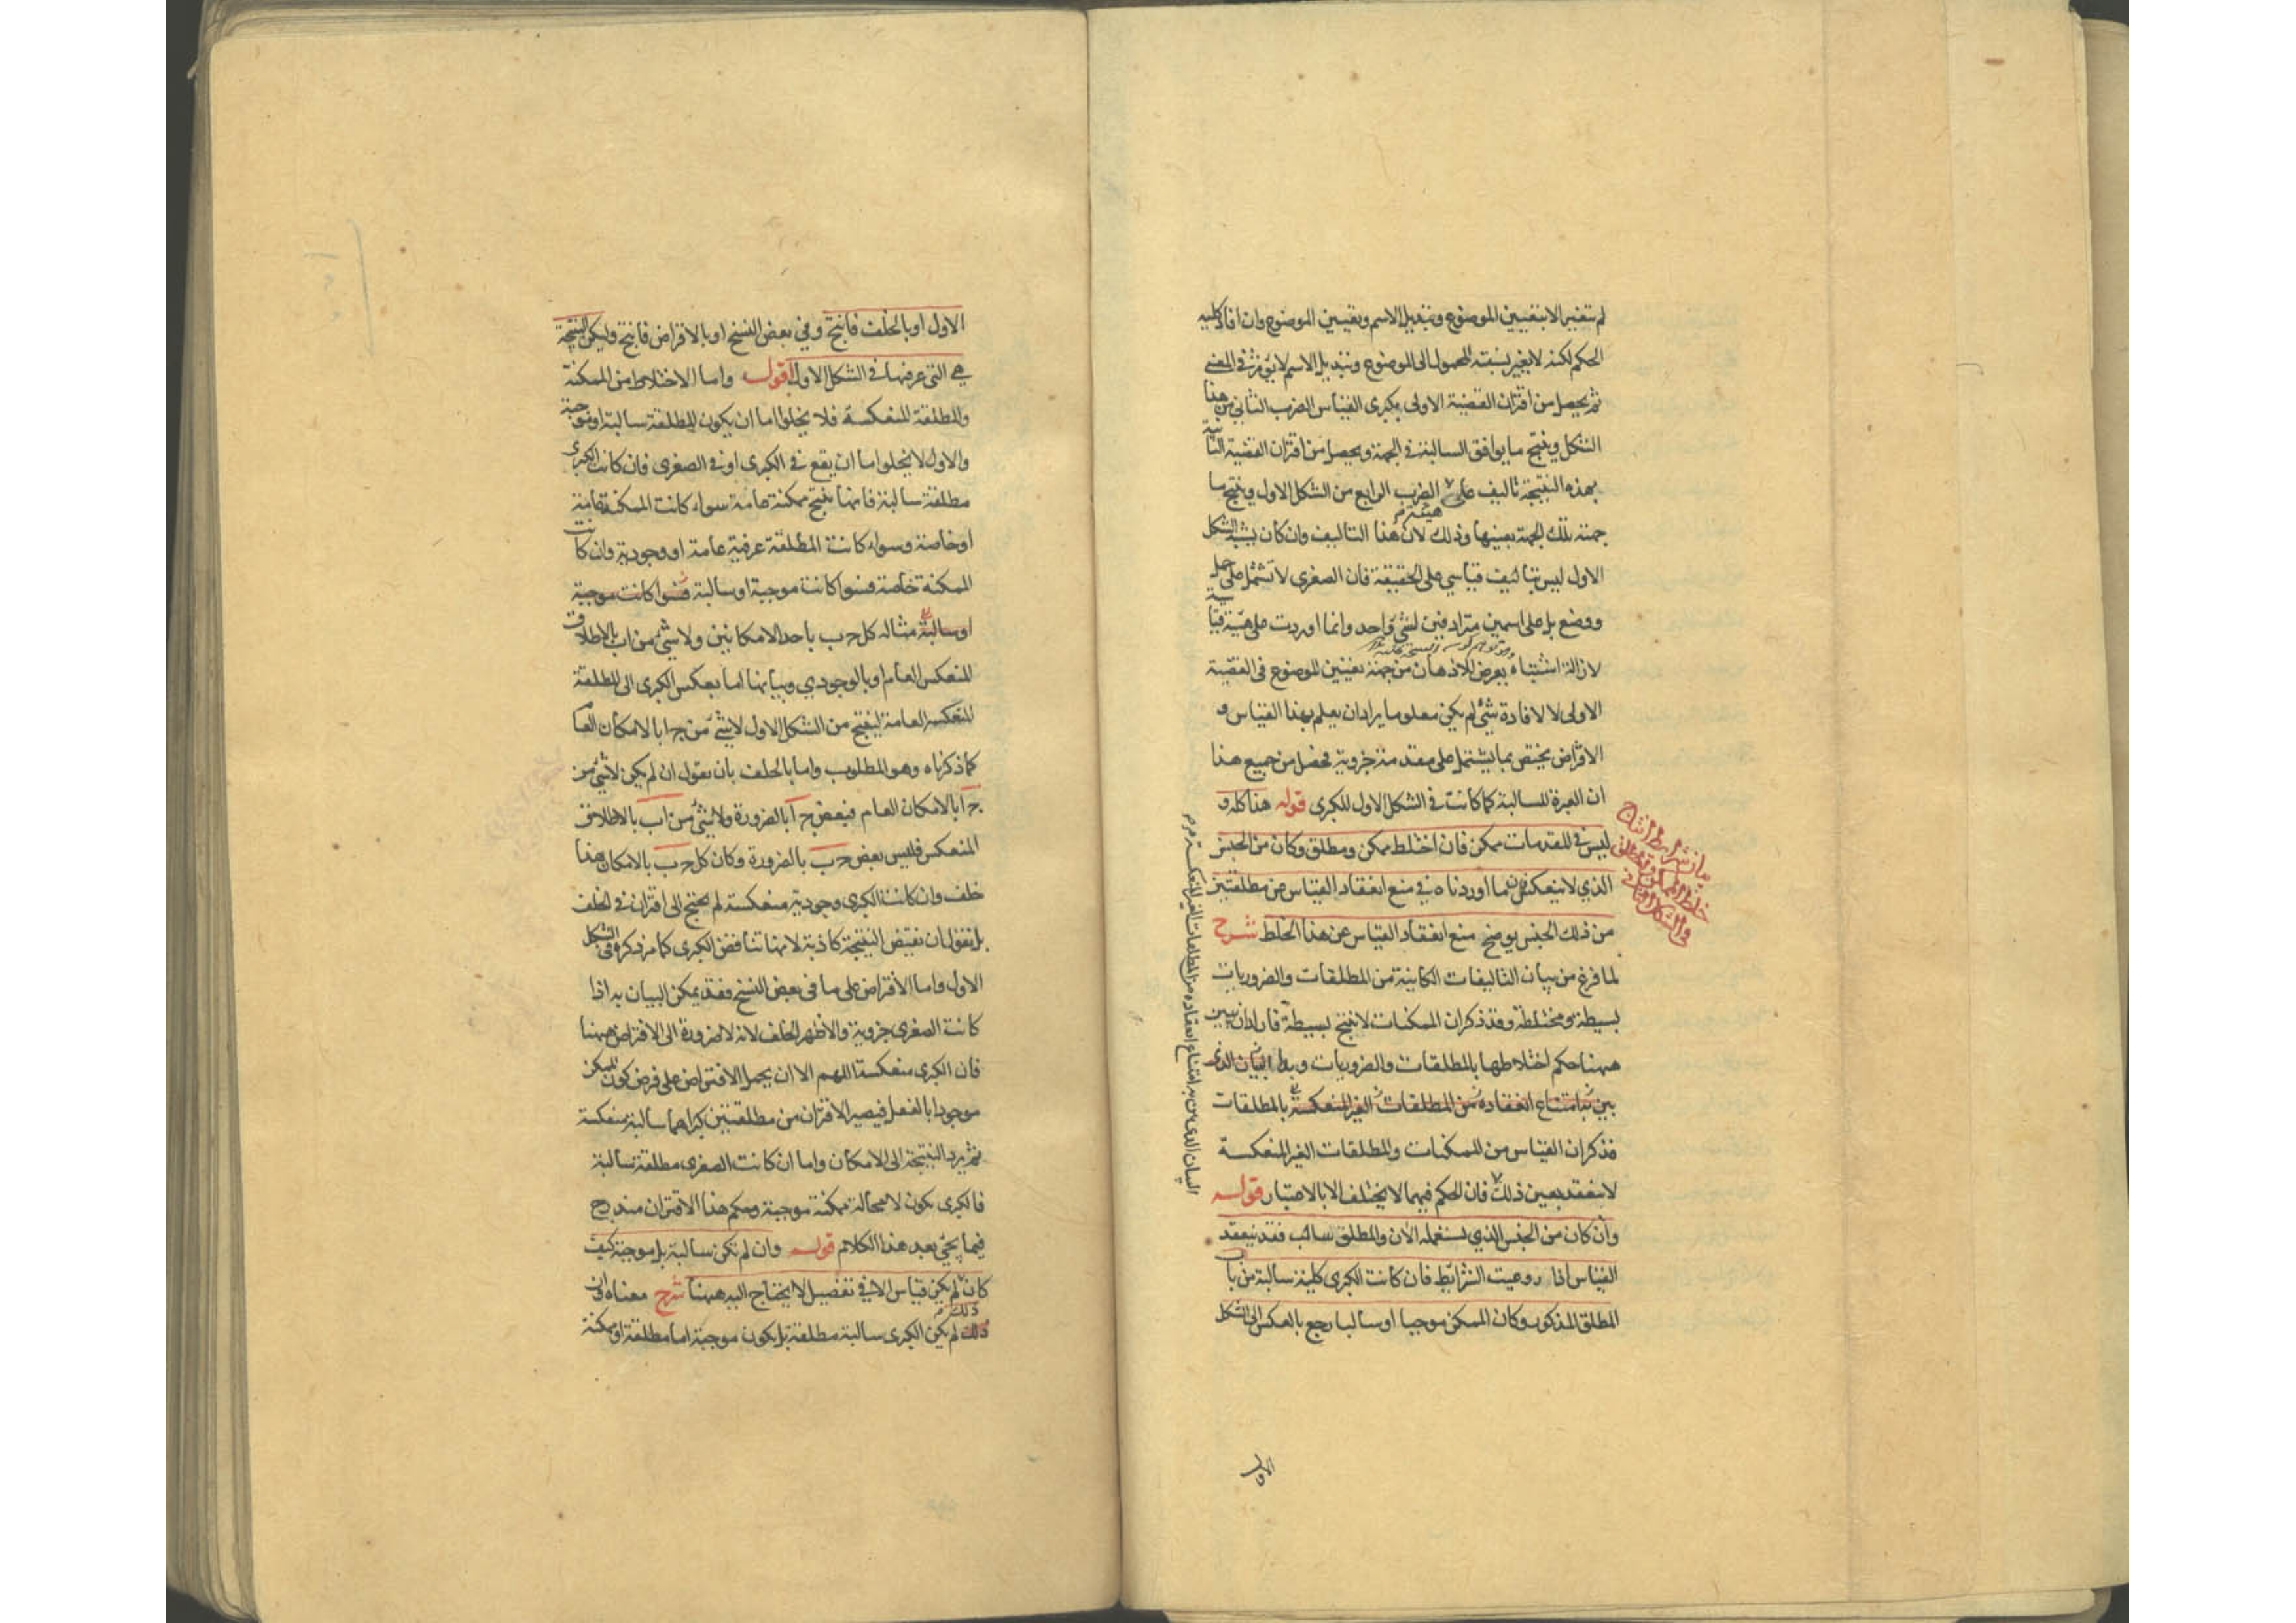 لم تتغير الا بتعيين الموضوع وتبديل الاسم وتعيين الموضوع وان افاد كلية
الحكم لكنه لا يغير نسبة المحمول الى الموضوع وتبديل الاسم لا يؤثر في المعنى
ثم يحصل من اقتران القضية الاولى بكبرى القياس الضرب الثاني من هذا
الشكل وينتج ما يوافق السالبة في الجهة ويحصل من اقتران القضية الثانية
بهذه النتيجة تاليف على هيئة الضرب الرابع من الشكل الاول وينتج ما
جهته تلك الجهة بعينها وذلك لان هذا التاليف وان كان يشبه الشكل
الاول ليس بتاليف قياسي على الحقيقة فان الصغرى لا تشتمل على حمل
ووضع بل على اسمين مترادفين لشئ واحد وانما اوردت على هيئة قياسية
لازالة اشتباه يعرض للاذهان من جهة تعيين الموضوع في القضية
الاولى لا لافادة شئ لم يكن معلوما يراد ان يعلم بهذا القياس و
الافتراض يختص بما يشتمل على مقدمة جزوية فحصل من جميع هذا
ان العبرة للسالبة كما كانت في الشكل الاول للكبرى قوله هذا كله و
ليس في المقدمات ممكن فان اختلط ممكن ومطلق وكان من الجنس
الذي لا ينعكس فان ما اوردناه في منع انعقاد القياس من مطلقتين
من ذلك الجنس يوضح منع انعقاد القياس عن هذا الخلط شرح
لما فرغ من بيان التاليفات الكاينة من المطلقات والضروريات
بسيطة ومختلطة وقد ذكر ان الممكنات لا تنتج بسيطة فاراد ان يبين
ههنا حكم اختلاطها بالمطلقات والضروريات وبدا البيان الذي
بين به امتناع انعقاده من المطلقات الغير المنعكسة بالمطلقات
فذكر ان القياس من الممكنات والمطلقات الغير المنعكسة
لا ينعقد بعين ذلك فان الحكم فيهما لا يختلف الا بالاعتبار قوله
وان كان من الجنس الذي نستعمله الآن والمطلق سالب فقد ينعقد
القياس اذا روعيت الشرايط فان كانت الكبرى كلية سالبة من باب
المطلق المذكور وكان الممكن موجبا او سالبا رجع بالعكس الى الشكل
الاول
بيان شرايط انتاج
خلط الممكن والمطلق
في الشكل الثاني
البيان الذي بين به امتناع انعقاده من المطلقات الغير المنعكسة
الاول او بالخلف فانتج وفي بعض النسخ او بالافتراض فانتج وليكن النتيجة
هي التي عرفتها في الشكل الاول اقول واما الاختلاط من الممكنة
والمطلقة المنعكسة فلا يخلوا اما ان يكون المطلقة سالبة او موجبة
والاول لا يخلوا اما ان يقع في الكبرى او في الصغرى فان كانت الكبرى
مطلقة سالبة فانها تنتج ممكنة عامة سواء كانت الممكنة عامة
او خاصة وسواء كانت المطلقة عرفية عامة او وجودية وان كانت
الممكنة خاصة فسوا كانت موجبة او سالبة فسوا كانت موجبة
او سالبة مثاله كل ج ب باحد الامكانين ولا شئ من ا ب بالاطلاق
المنعكس العام او بالوجودي وبيانها اما بعكس الكبرى الى المطلقة
المنعكسة العامة لينتج من الشكل الاول لا شئ من ج ا بالامكان العام
كما ذكرناه وهو المطلوب واما بالخلف بان نقول ان لم يكن لا شئ من
ج ا بالامكان العام فبعض ج ا بالضرورة ولا شئ من ا ب بالاطلاق
المنعكس فليس بعض ج ب بالضرورة وكان كل ج ب بالامكان هذا
خلف وان كانت الكبرى وجودية منعكسة لم يحتج الى اقتران في الخلف
بل نقول ان نقيض النتيجة كاذبة لانها تناقض الكبرى كما مر ذكره في الشكل
الاول واما الافتراض على ما في بعض النسخ فقد يمكن البيان به اذا
كانت الصغرى جزوية والاظهر الخلف لانه لا ضرورة الى الافتراض ههنا
فان الكبرى منعكسة اللهم الا ان يحمل الافتراض على فرض كون الممكن
موجودا بالفعل فيصير الاقتران من مطلقتين كبراهما سالبة منعكسة
ثم يرد النتيجة الى الامكان واما ان كانت الصغرى مطلقة سالبة
فالكبرى يكون لا محالة ممكنة موجبة وحكم هذا الاقتران مندرج
فيما يجئ بعد هذا الكلام قوله وان لم تكن سالبة بل موجبة كيف
كان لم يكن قياس الا في تفصيل لا يحتاج اليه ههنا شرح معناه ان
ذلك لم يكن الكبرى سالبة مطلقة بل يكون موجبة اما مطلقة او ممكنة